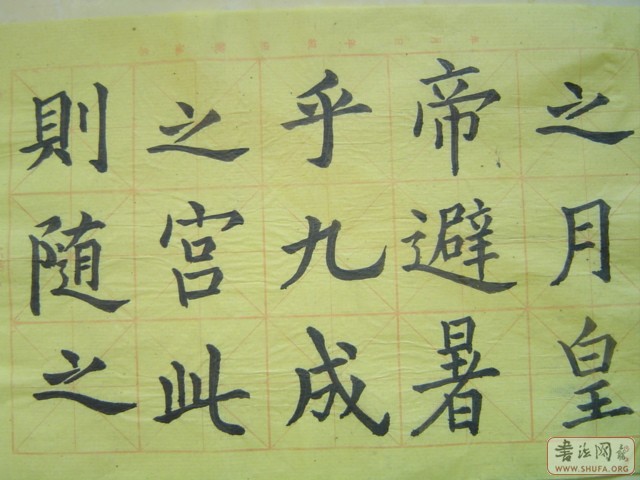 之月皇
帝避暑
乎九成
之宫此
則随之
書法网
WWW.SHUFA.ORG